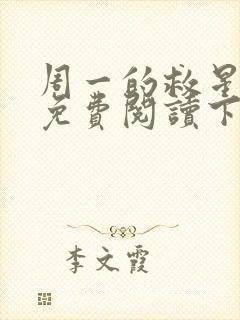 周一的救星
免費閱讀下
李文霞